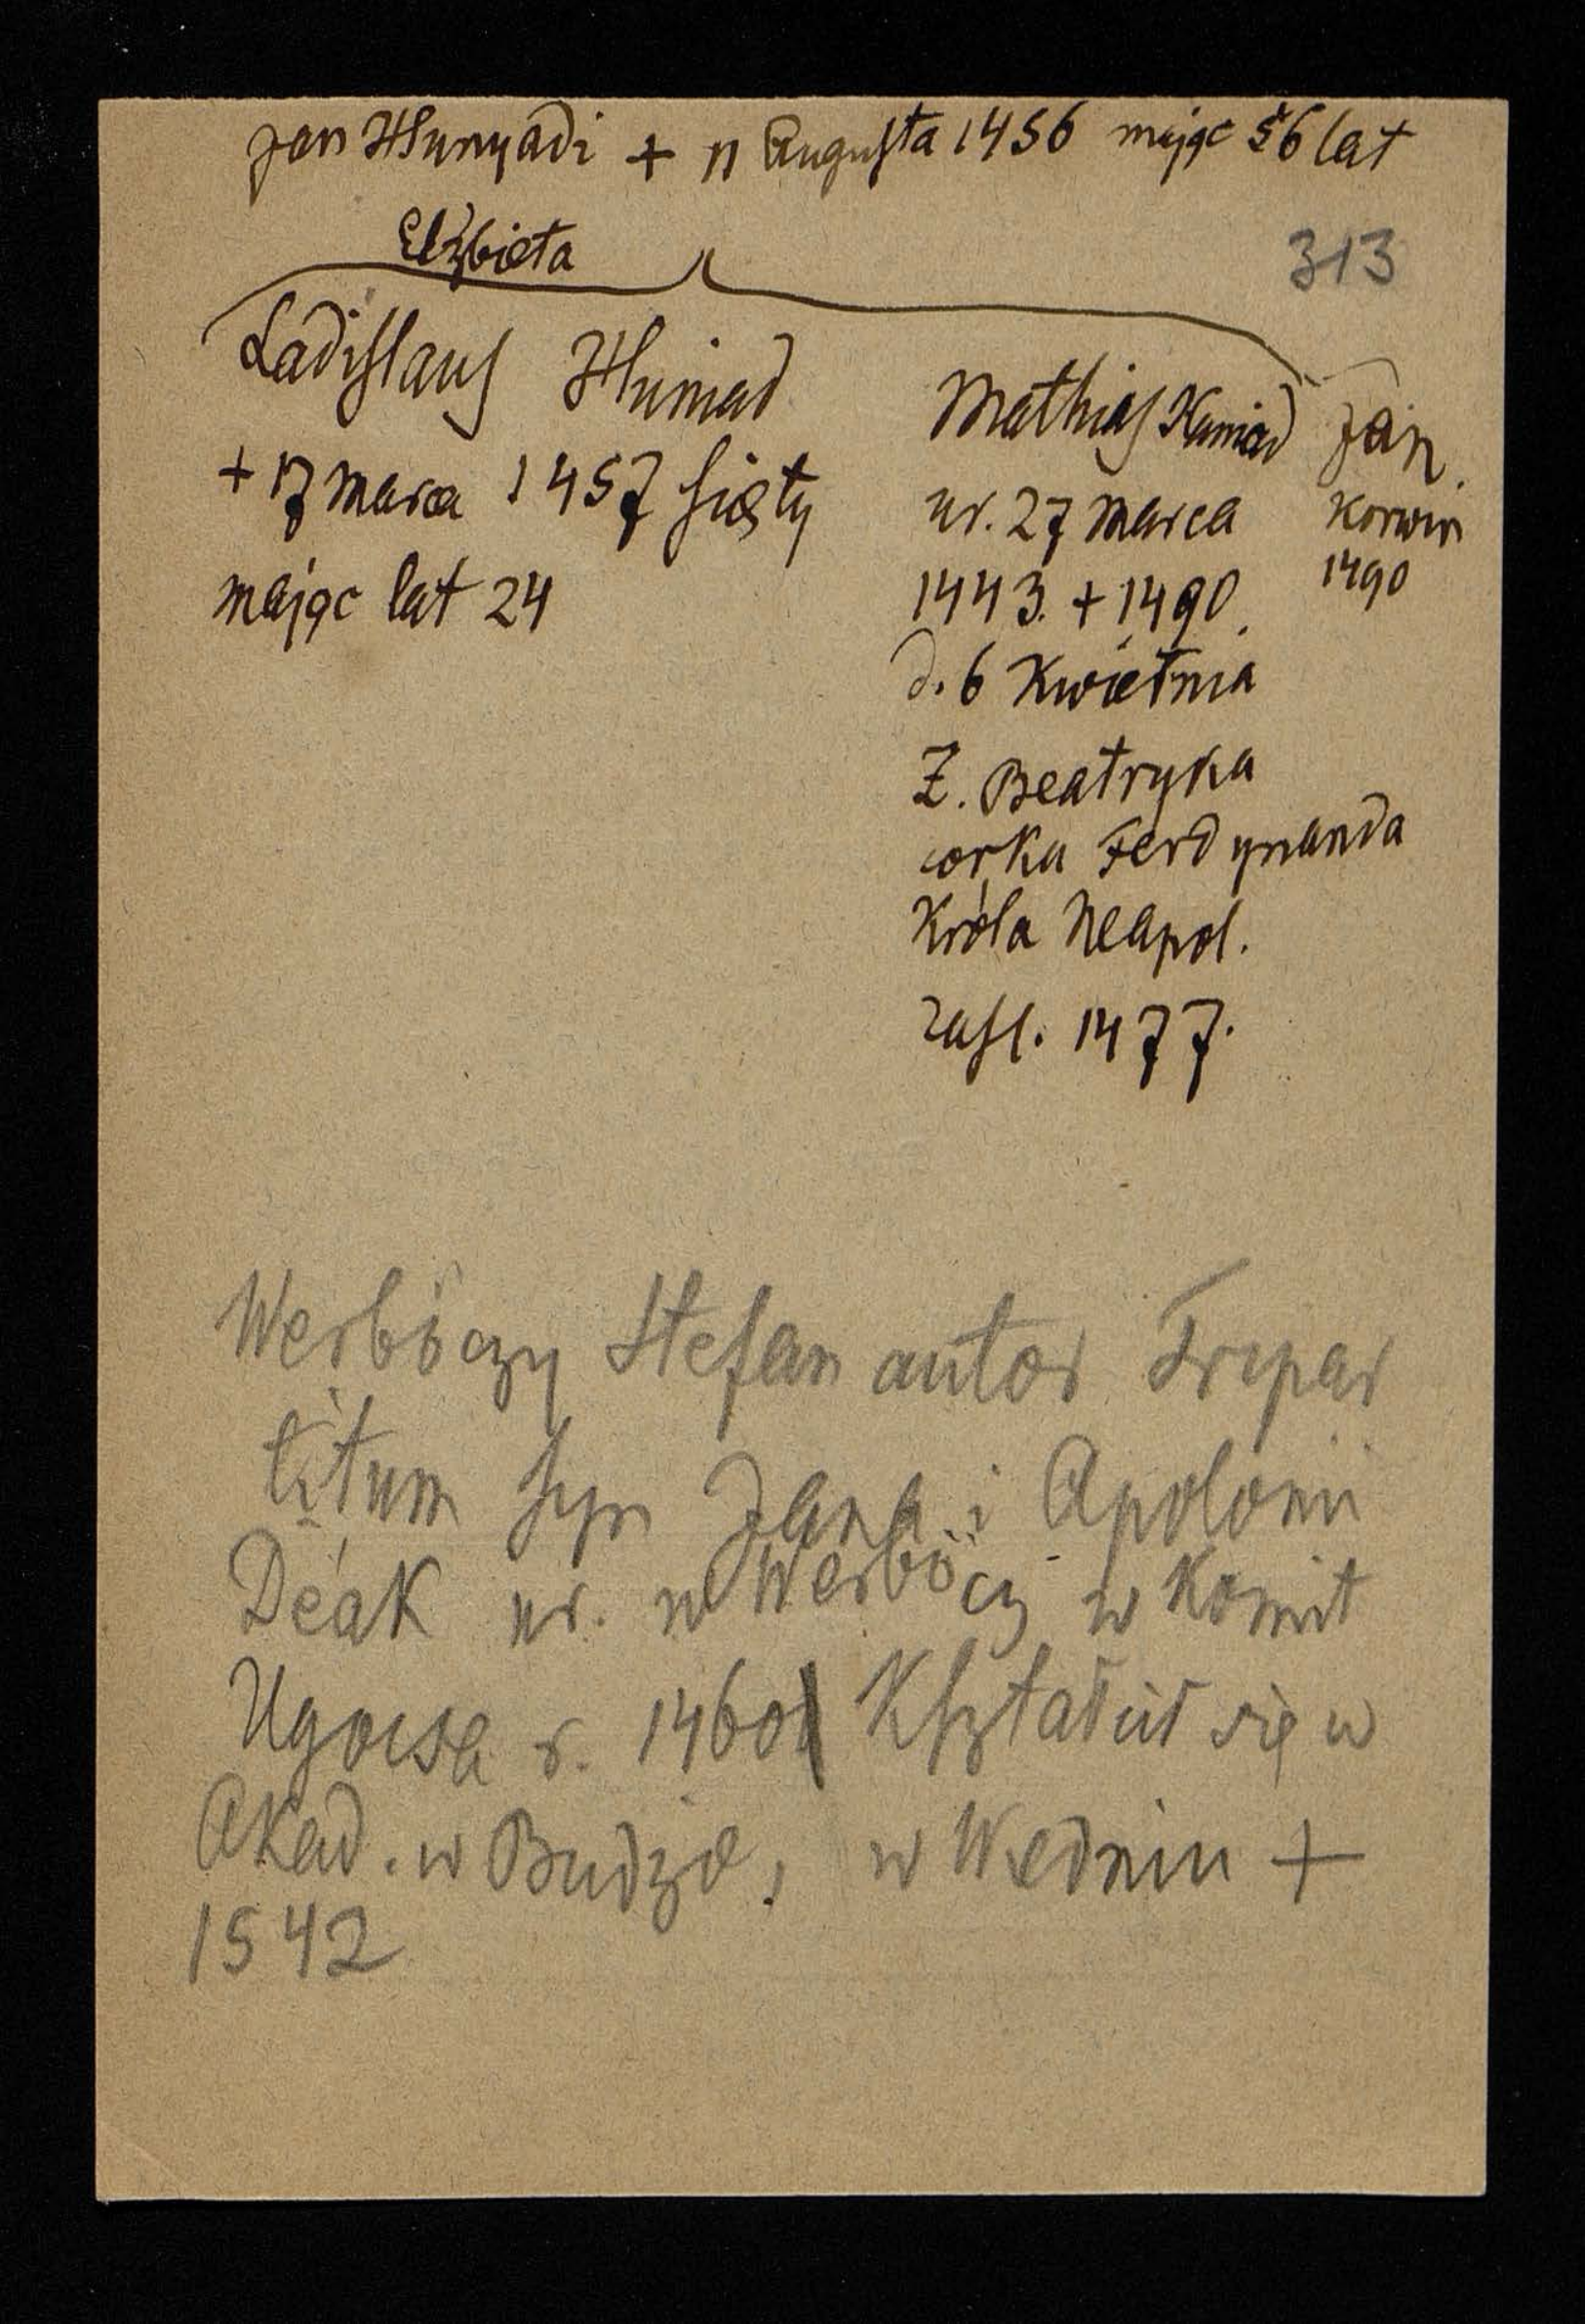 Jan Hunyadi + 11 Augusta 1456 mając 56 lat
313
Elżbieta
Ladislaus Huniad
+ 17 marca 1457 ścięty
mając lat 24
Mathias Huniad
ur. 27 marca
1443. + 1490.
d. 6 Kwietnia
Ż. Beatryka
corka Ferdynanda
Króla Neapol.
zasl. 1477.
Jan
Korwin
1490
Werböczy Stefan autor Tripar
titum syn Jana i Apolonii
Deák ur. w Werböcz w Komit
Ugocsa r. 1460 Kształcił się w
Akad. w Budzie, w Wiedniu +
1542